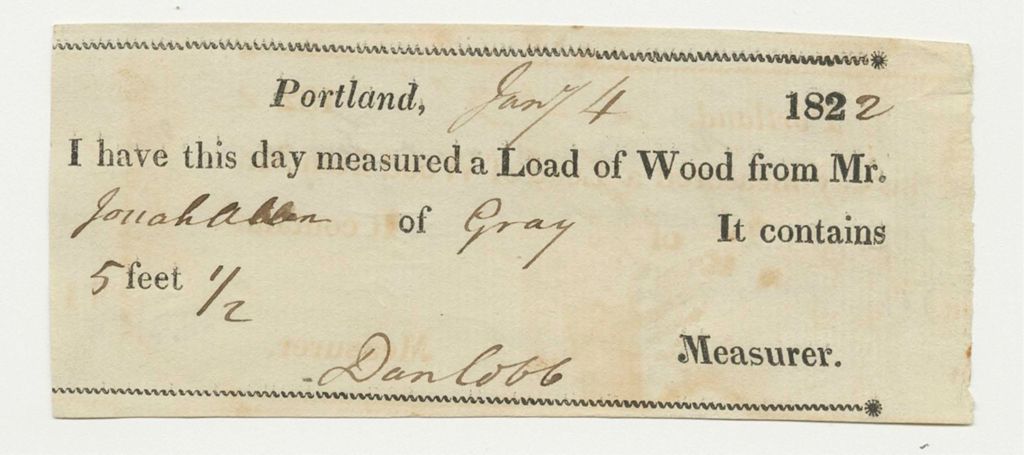 Portland, Jany 4 1822
I have this day measured a Load of Wood from Mr.
Jonah Allen of Gray It contains
5 feet 1/2
Dan Cobb Measurer.